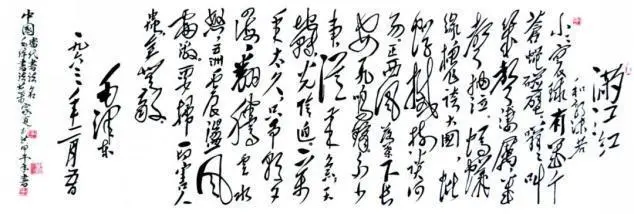 满江红
和郭沫若
小小寰球有几个
苍蝇碰壁嗡嗡叫
几声凄厉几
声抽泣蚂蚁
缘槐夸大国蚍
蜉撼树谈何
易正西风落叶下长
安飞鸣镝多少
事从来急天
地转光阴迫一万
年太久只争朝夕
四海翻腾云水
怒五洲震荡风
雷激要扫除一切害人
虫全无敌
毛泽东
一九六三年一月九日
中国当代书法名